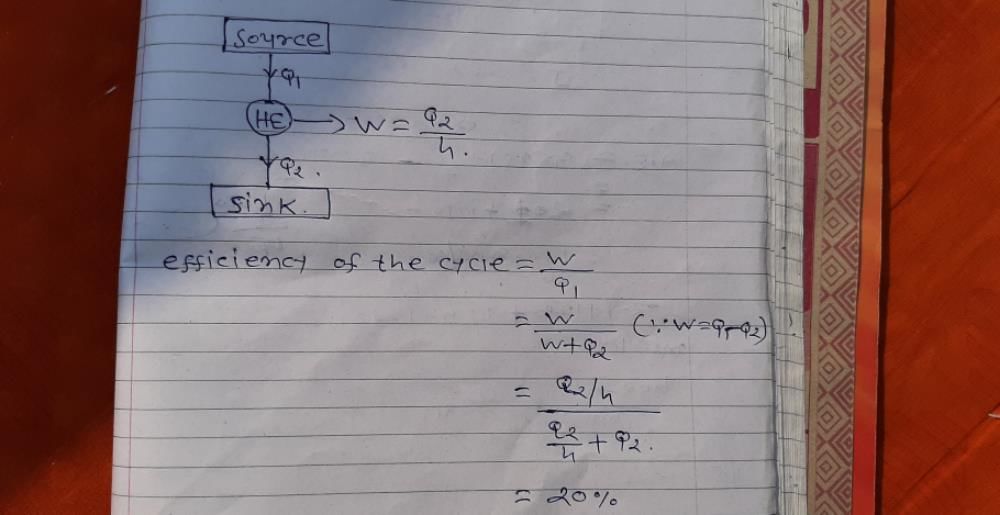 Source
Q1
HE → W = Q2/4.
Q2.
Sink.
efficiency of the cycle = W/Q1
= W/(W+Q2) (∵ W=Q1-Q2)
= (Q2/4)/(Q2/4 + Q2.)
= 20%